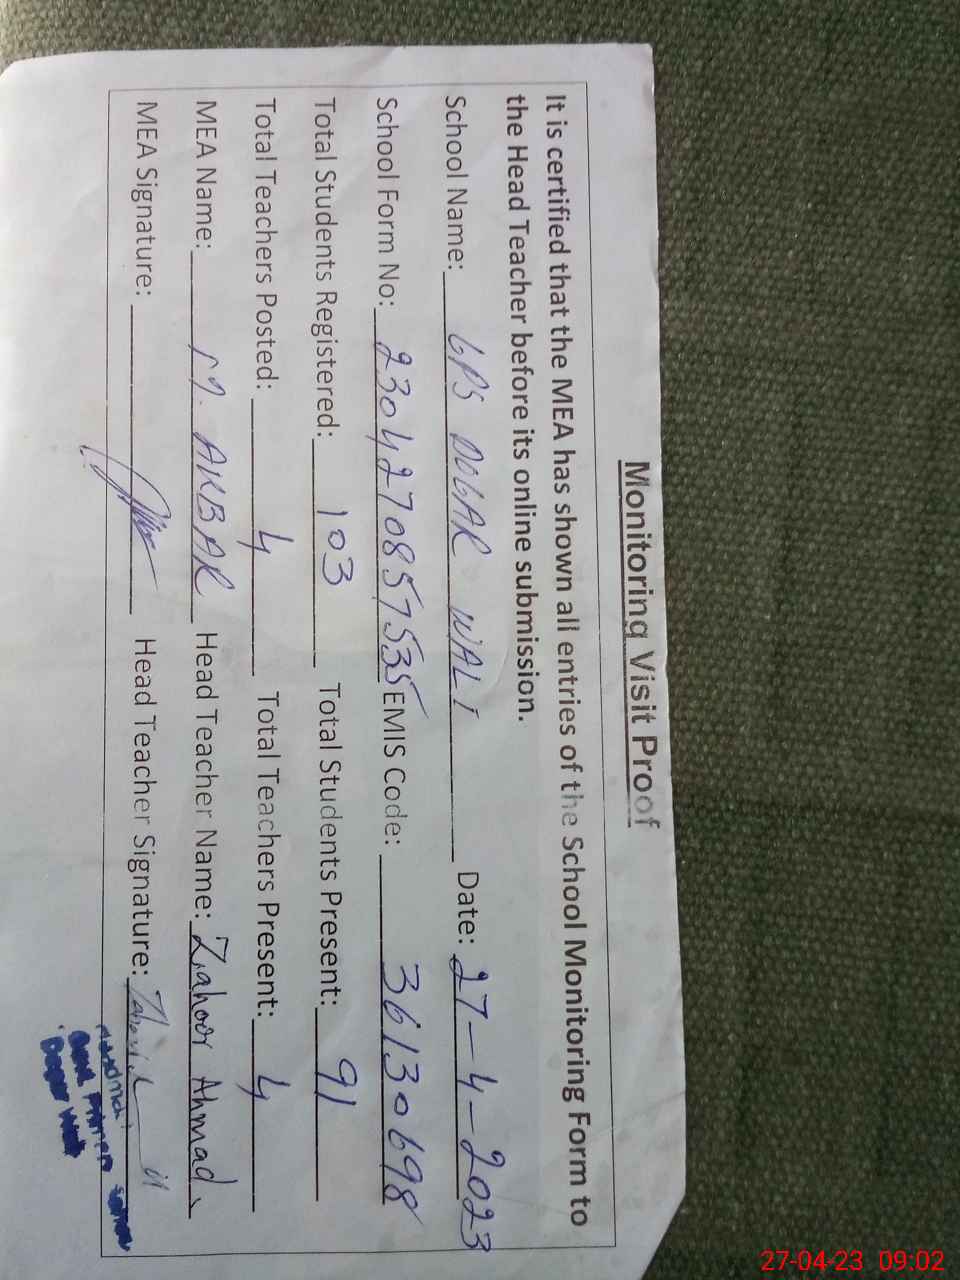 Monitoring Visit Proof
It is certified that the MEA has shown all entries of the School Monitoring Form to
the Head Teacher before its online submission.
School Name: GPS DOGAR WALI Date: 27-4-2023
School Form No: 2304270857535 EMIS Code: 36130698
Total Students Registered: 103 Total Students Present: 91
Total Teachers Posted: 4 Total Teachers Present: 4
MEA Name: M. AKBAR Head Teacher Name: Zahoor Ahmad
MEA Signature: Head Teacher Signature:
Govt. Primary
Dogar Wali
27-04-23 09:02